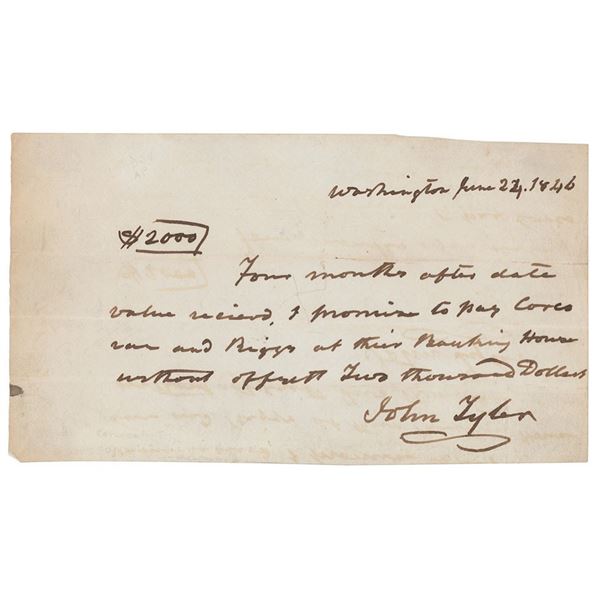 Washington June 24. 1846
$2000
Four months after date
value recierd, I promise to pay Corco
ran and Riggs at their Banking House
without offsett Two thousand Dollars
John Tyler